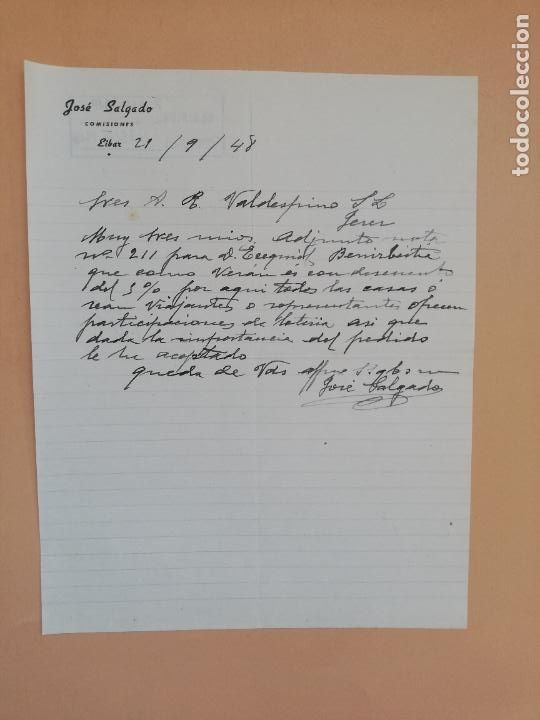 José Salgado
COMISIONES
Eibar 21 / 9 / 48
Sres A. R. Valdespino S L
Jerez
Muy Sres mios, Adjunto nota
nº 211 para D. Ezequiel
que como Verán es con descuento
del 3% por aqui todos las casas ó
sean Viajantes o representantes ofrecen
participaciones de loteria asi que
dada la importancia del pedido
le he aceptado
queda de Vds affmo S.
José Salgado
todocoleccion
todocoleccion